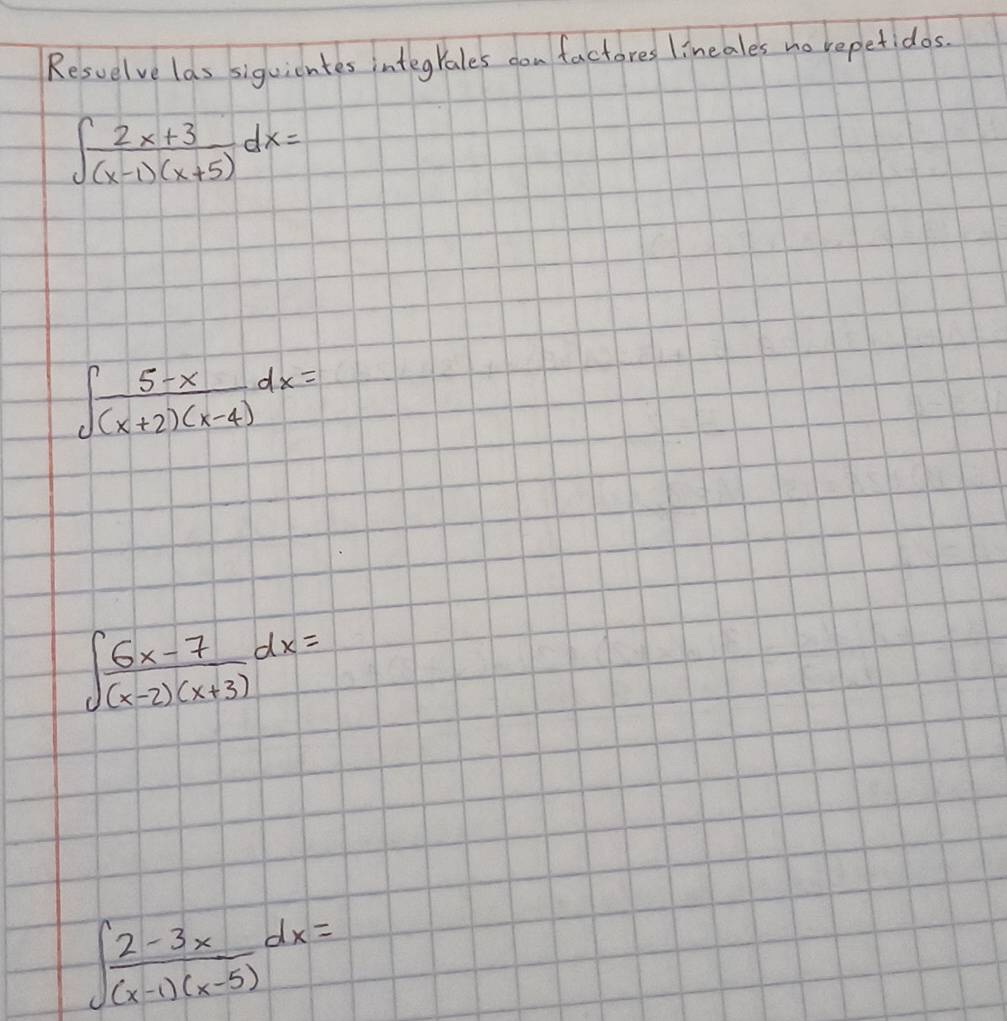 Resuelve las siguientes integrales con factores líneales no repetidos.
∫ 2x+3 / (x-1)(x+5) dx=
∫ 5-x / (x+2)(x-4) dx=
∫ 6x-7 / (x-2)(x+3) dx=
∫ 2-3x / (x-1)(x-5) dx=